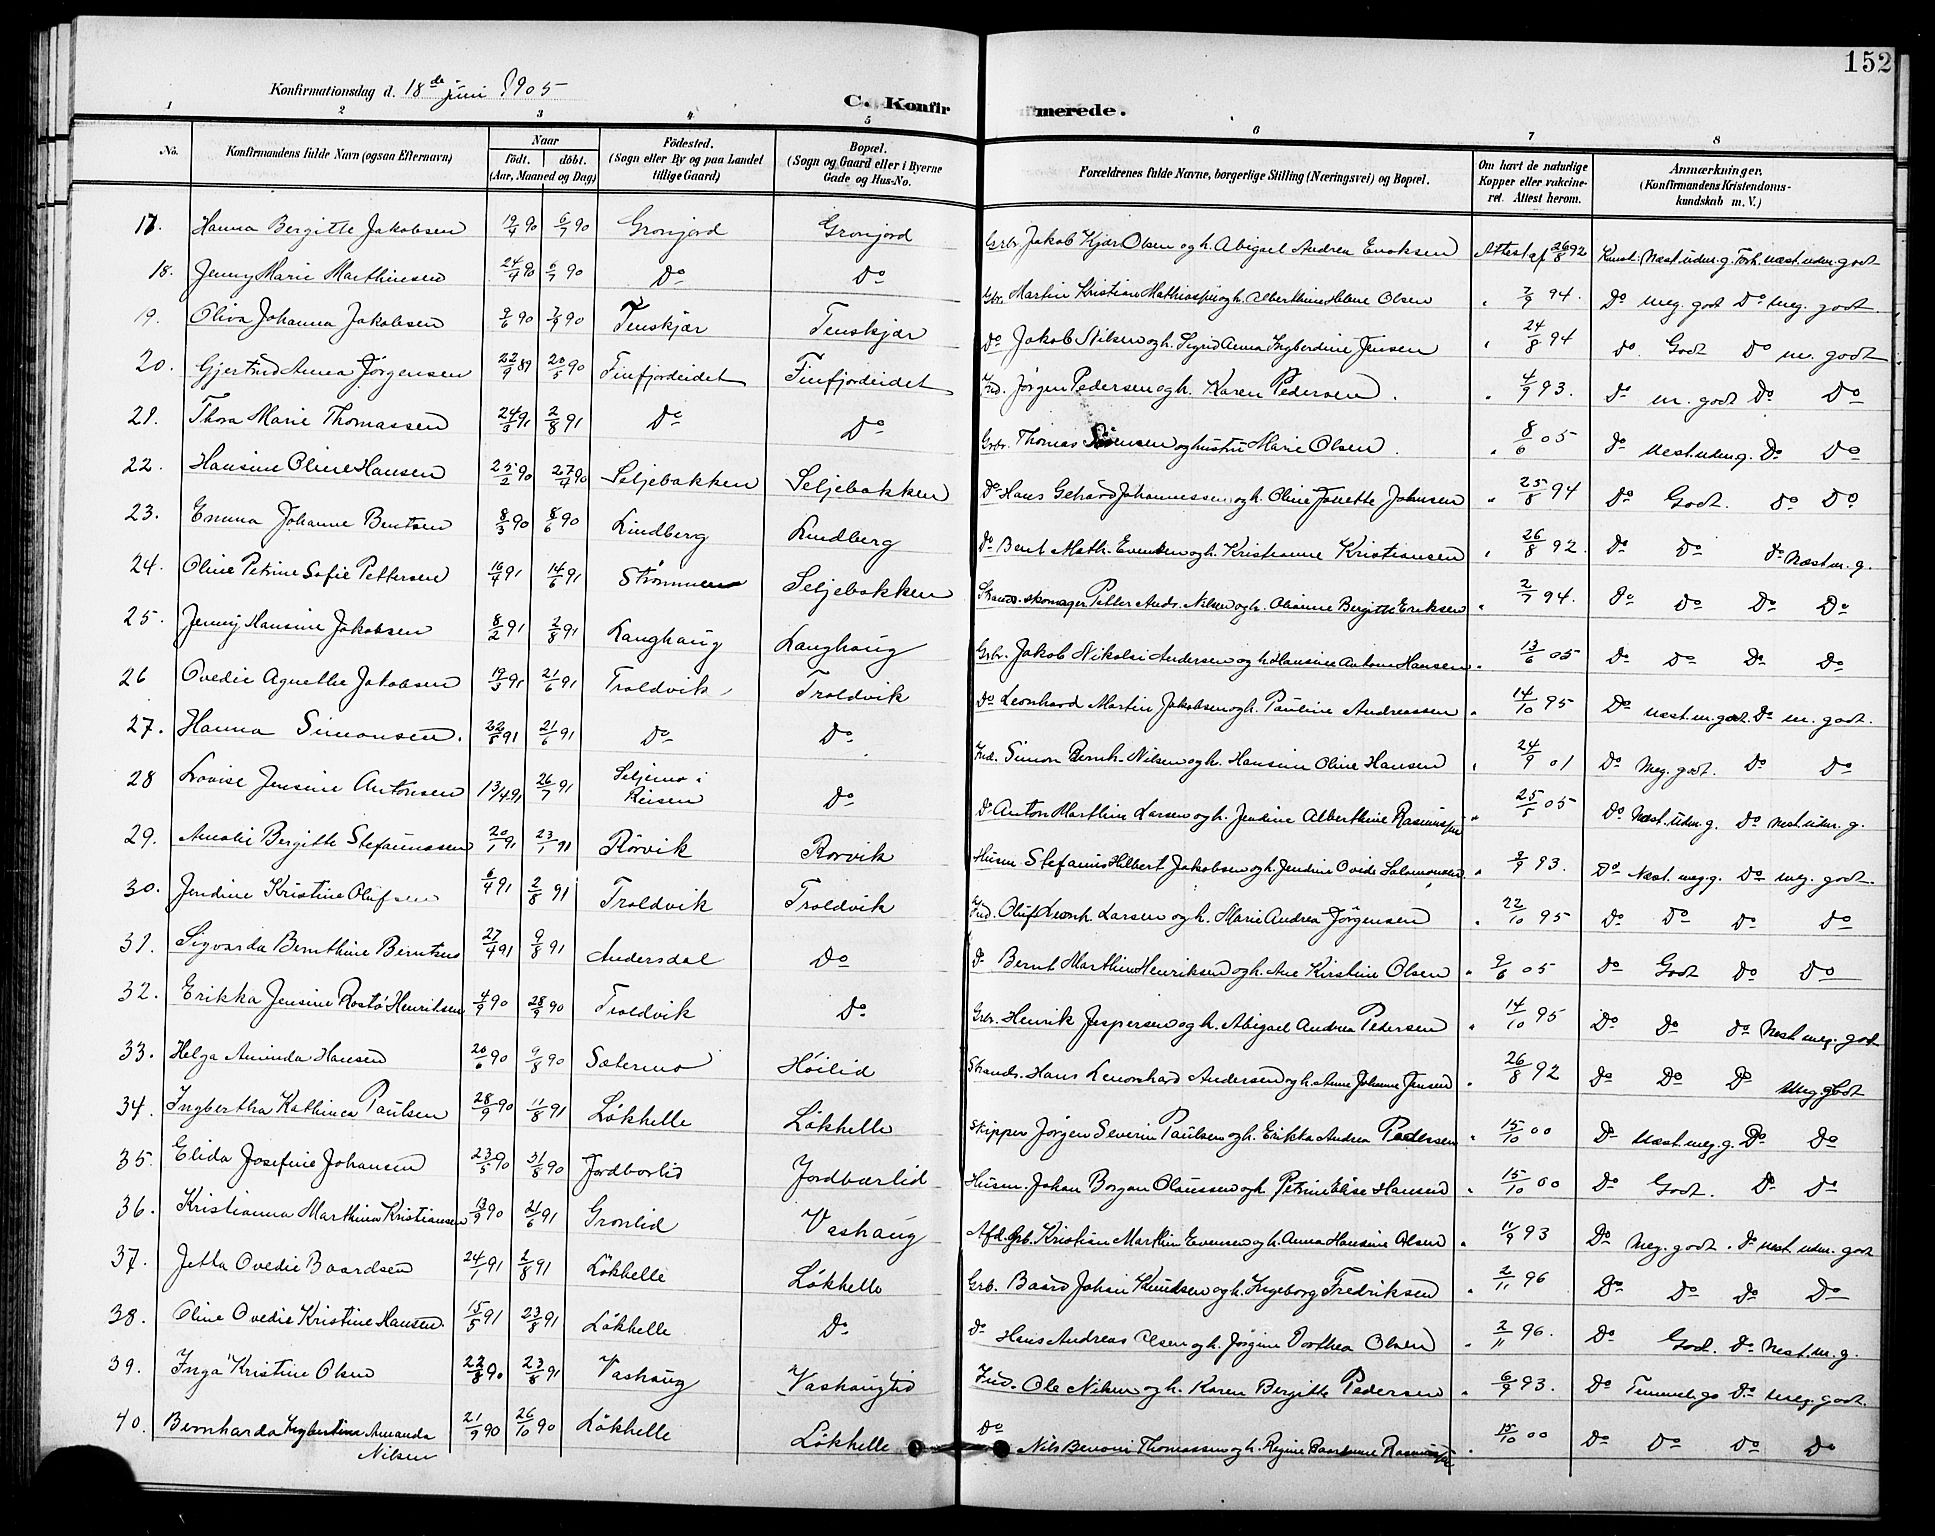 152
Konfirmationsdag d. 18de juni 1905
C. Konfirmerede.
1 2 3 4 5 6 7 8
No. Konfirmandens fulde Navn (ogsaa Efternavn) Naar født. døbt. (Aar, Maaned og Dag) Födested. (Sogn eller By og paa Landet tillige Gaard) Bopæl. (Sogn og Gaard eller i Byerne Gade og Hus-No. Forældrenes fulde Navne, borgerlige Stilling (Næringsvei) og Bopæl. Om havt de naturlige Kopper eller vakcineret. Attest herom. Anmærkninger. (Konfirmandens Kristendomskundskab m. V.)
17. Hanna Bergitte Jakobsen 19/4 90 6/7 90 Gronjord Gronjord Grbr. Jakob Kjær Olsen og h. Abigael Andrea Enoksen Attest af 26/8 92 Kunst. Næst. udm. g. Forh. næst. udm. godt
18. Jenny Marie Marthinsen 24/4 90 6/7 90 Do Do Gbr. Martin Kristian Mathias og h. Alberthine Helene Olsen " 7/9 94. Do meg. godt Do meg. godt.
19. Oliva Johanna Jakobsen 9/6 90 7/9 90 Tenskjær Tenskjær Do Jakob Nilsen og h. Sigrid Anna Ingberdine Jensen " 24/8 94 Do Godt Do m. godt
20. Gjertrud Anna Jörgensen 22/9 89 20/5 90 Finfjordeidet Finfjordeidet Ind. Jörgen Pedersen og h. Karen Pedersen. " 4/9 93. Do m. godt Do Do
21. Thora Marie Thomassen 24/3 91 2/8 91 Do Do Grbr. Thomas Sörensen og hustru Marie Olsen. " 8/6 05 Do Næst. udm g. Do Do
22. Hansine Oline Hansen 25/2 90 27/4 90 Seljebakken Seljebakken Do Hans Gerhard Johannessen og h. Oline Jonette Johnsen " 25/8 94 Do Godt. Do Do
23. Emma Johanne Bentsen 8/3 90 8/6 90 Lindberg Lindberg Do Bent Math. Evensen og h. Kristianne Kristiansen " 26/8 92. Do Do Do Næst m. g.
24. Oline Petrine Sofie Pettersen 16/4 91 14/6 91 Strømmen Seljebakken Strands. skomager Petter Ands. Nilsen og h. Olianne Bergitte Eriksen " 2/7 94. Do Do Do Do
25. Jenny Hansine Jakobsen 8/2 91 2/8 91 Langhaug Langhaug Grbr. Jakob Nikolai Andersen og h. Hansine Antone Hansen. " 13/6 05 Do Do Do Do
26 Ovedie Agnethe Jakobsen 19/3 91 21/6 91 Troldvik Troldvik Do Leonhard Martin Jakobsen og h. Pauline Andreassen " 14/10 95 Do næst. m. godt. Do m. godt.
27. Hanna Simonsen. 22/8 91 21/6 91 Do Do Ind. Simon Bernh. Nilsen og h. Hansine Oline Hansen " 24/9 01 Do Meg. godt. Do Do
28 Lovise Jensine Antonsen 13/4 91 26/7 91 Seljemo i Reisen Do Do Anton Marthin Larsen og h. Jendine Alberthine Rasmussen " 25/5 05 Do Næst. udm. g. Do Næst. udm. g.
29. Amalie Bergitte Stefanussen 20/1 91 23/1 91 Rörvik Rorvik Husm Stefanus Hilbert Jakobsen og h. Jendine Ovide Salomonsen " 2/9 93. Do Næst. meg g. Do meg. godt.
30. Jendine Kristine Olufsen 6/4 91 2/8 91 Troldvik Troldvik Ind. Oluf Leonh. Larsen og h. Marie Andrea Jörgensen " 22/10 95 Do Do Do Do
31. Sigvarda Bernthine Berntsen 27/4 91 9/8 91 Andersdal Do Do Bernt Marthin Henriksen og h. Ane Kirstine Olsen " 9/6 05 Do Godt Do Do
32. Erikka Jensine Rostø Henriksen 4/9 90 28/9 90 Troldvik Do Grbr. Henrik Jespersen og h. Abigael Andrea Pedersen " 14/10 95 Do Do Do Næst meg. godt
33. Helga Aminda Hansen 20/6 90 9/8 90 Sætermo Höilid Strands. Hans Lenonhard Andersen og h. Anne Johanne Jensen " 26/8 92 Do Do Do Meg. godt
34. Ingbertha Kathinca Paulsen 28/9 90 11/8 91 Lökhelle Lökhelle Skipper Jörgen Severin Paulsen og h. Erikka Andrea Pedersen " 15/10 00 Do Næst. meg. g. Do Do
35. Elida Josefine Johansen 23/5 90 31/8 90 Jordbærlid Jordbærlid Husm. Johan Borgan Olaussen og h. Petrine Elise Hansen " 15/10 00 Do Godt. Do Do
36. Kristianna Marthina Kristiansen 13/9 90 21/6 91 Gronlid Vashaug Afd. Grb. Kristian Marthin Evensen og h. Anna Hansine Olsen " 11/9 93 Do Meg. godt. Do næst. udm. godt
37. Jetta Ovedie Baardsen 24/1 91 2/8 91 Lökhelle Lökhelle Grb. Baard Johan Knudsen og h. Ingeborg Fredriksen " 2/11 96 Do Do Do Do
38. Oline Ovedie Kristine Hansen. 15/5 91 23/8 91 Lökhelle Do Do Hans Andreas Olsen og h. Jörgine Dorthea Olsen " 2/11 96. Do God. Do Næst. m. g.
39. Inga Kristine Olsen 22/8 90 23/8 91 Vashaug Vashauglid Ind. Ole Nilsen og h. Karen Bergitte Pedersen " 6/9 93. Do Temmelig Do meg. godt.
40. Bernharda Ingbertine Amanda Nilsen 21/9 90 26/10 90 Lökhelle Lökhelle Do Nils Benoni Thomassen og h. Regine Rasmussen " 15/10 00 Do Do Do Do